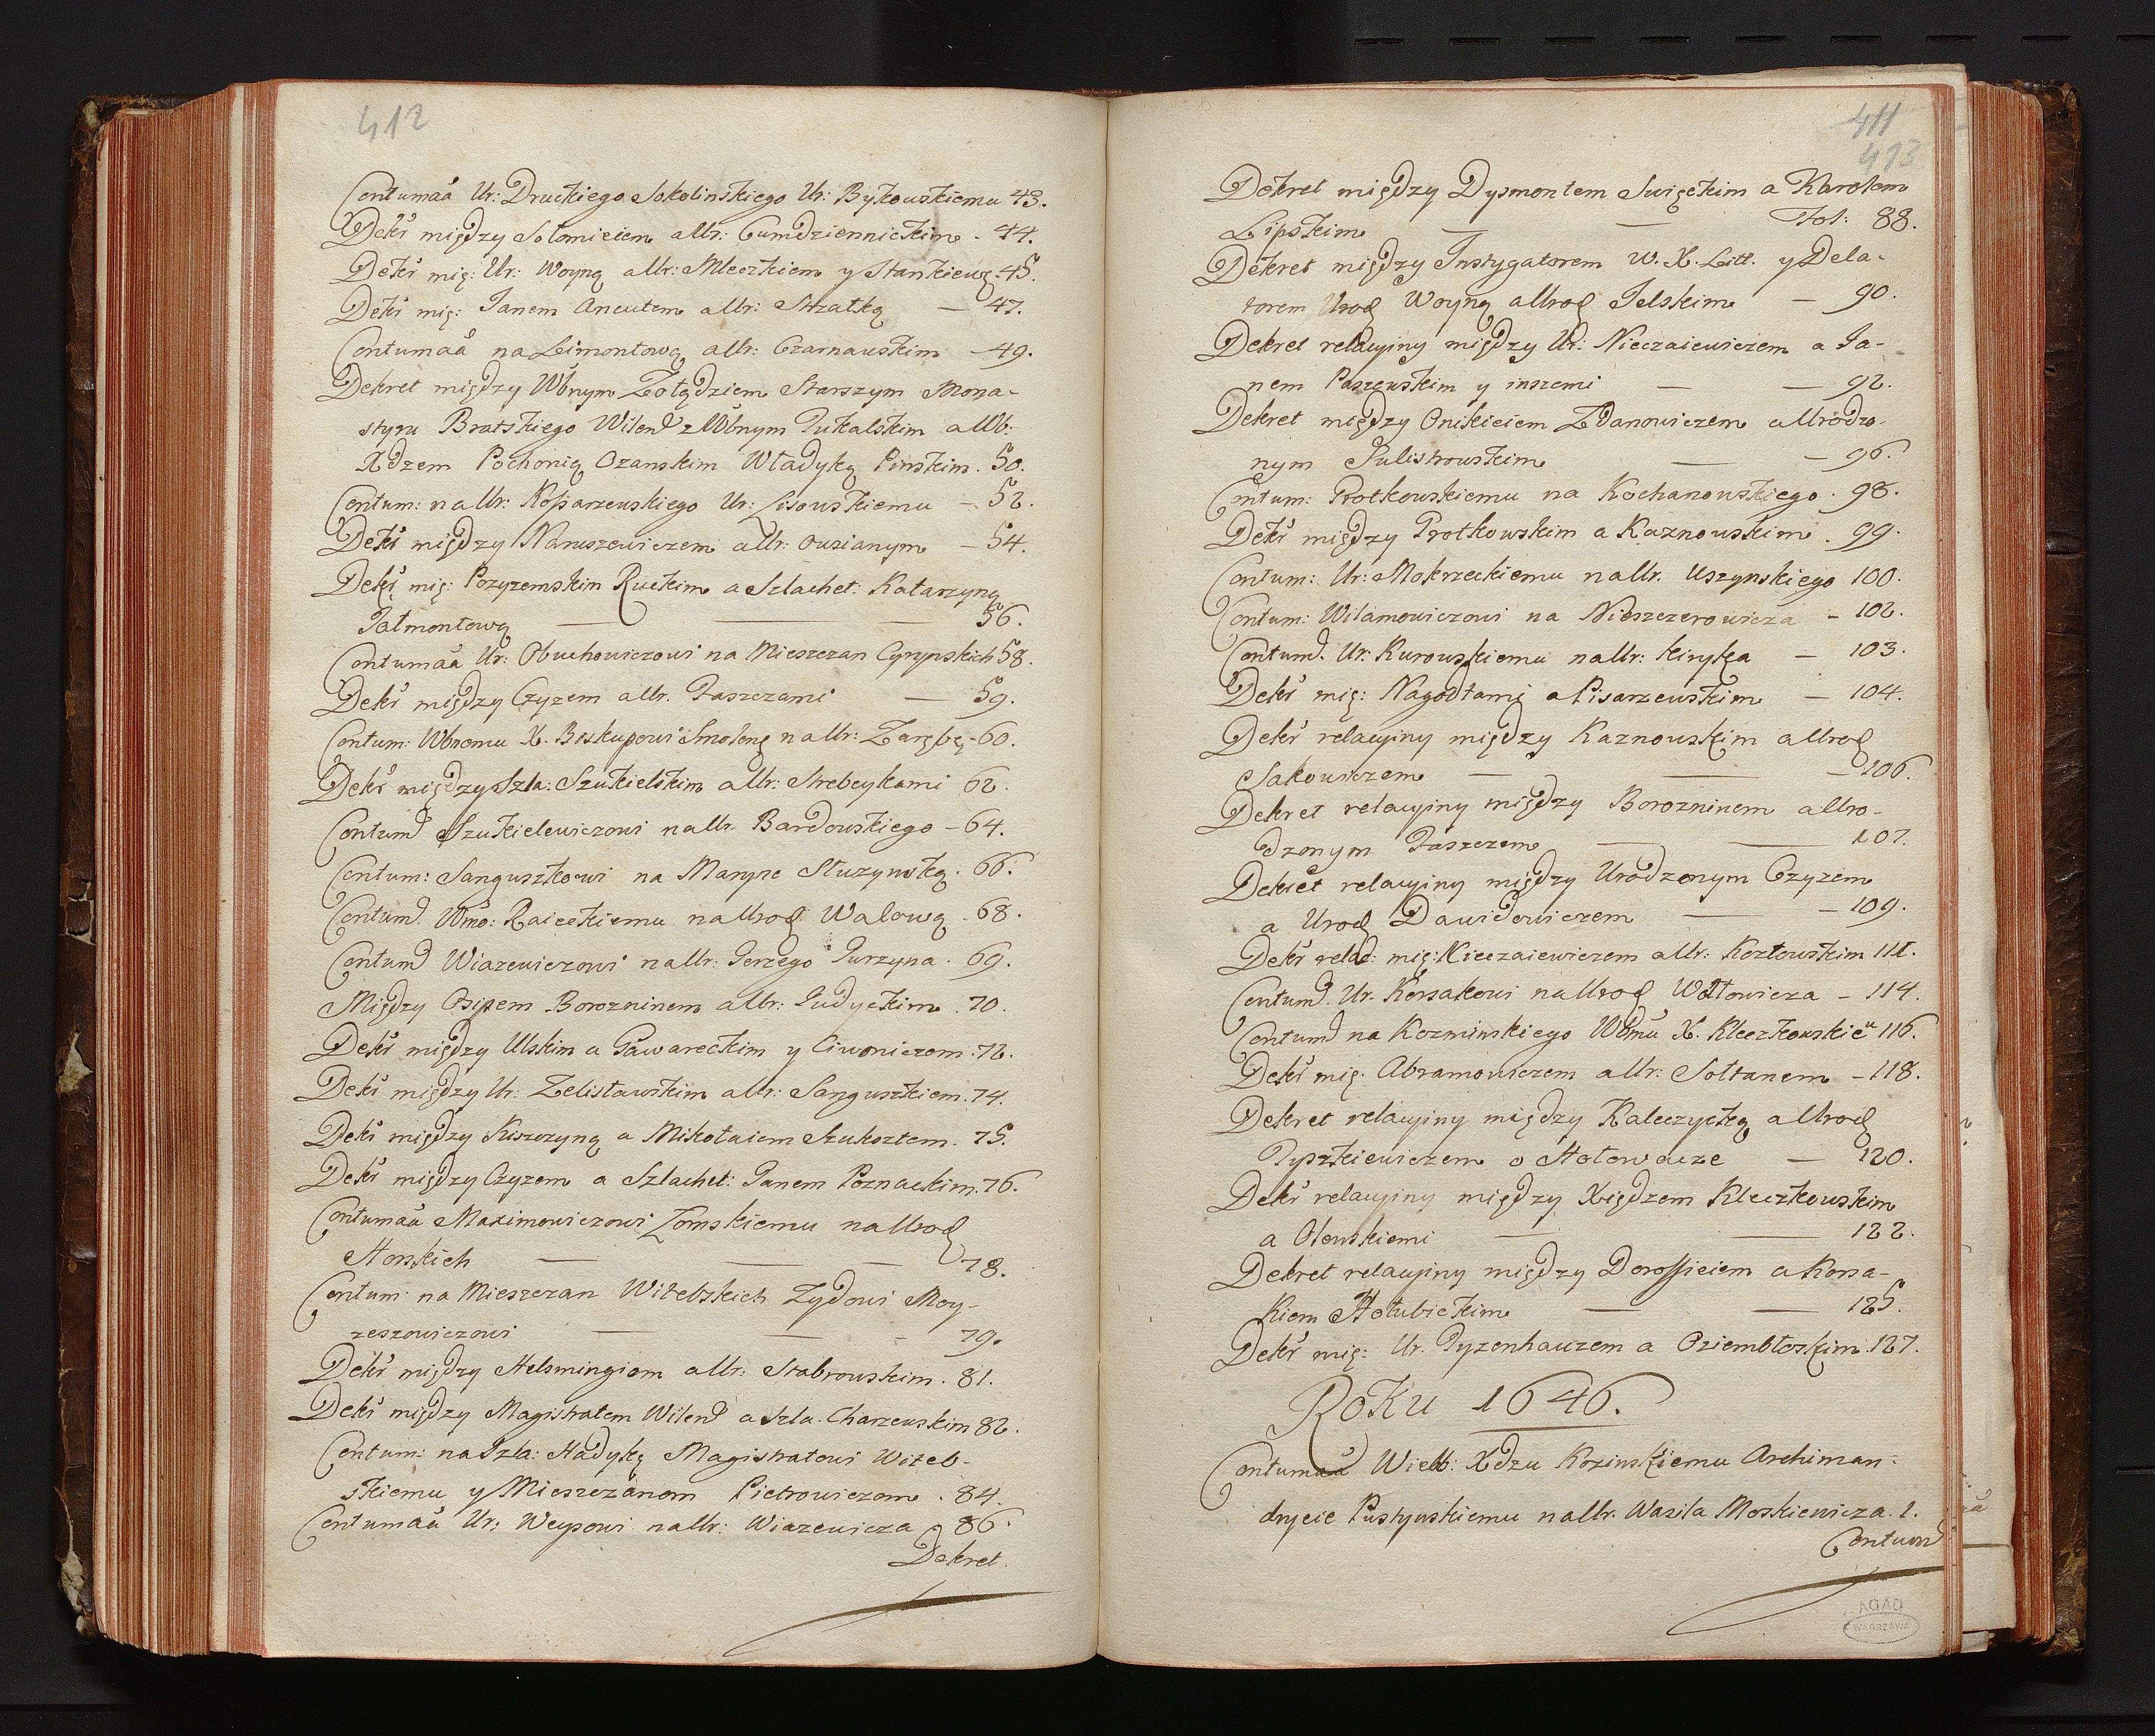 412
Contumaa Ur: Druckiego Sokolinskiego Ur: Bykowskiemu 43.
Dekr między Sołomieiem a Ur: Cumdziennickim . 44.
Dekr mię: Ur: Woyną a Ur: Mleczkiem y Stankiewę 45.
Dekr mię: Janem Ancutem a Ur: Strzałką — 47.
Contumaa na Leimontową a Ur: Czarnauskim — 49.
Dekret między Wbnym Zołędziem Starszym Mona-
styru Bratskiego Wilend z Wbnym Tukalskim a Wb:
Xdzem Pochonią Ozanskim Władyką Pinskim . 50.
Contum: na Ur: Kossarzewskiego Ur: Lisowskiemu — 52.
Dekr między Naruszewiczem a Ur: Ouzianym — 54.
Dekr mię: Pozyzemskim Ruckim a Szlachet: Katarzyną
Jałmontową — — 56.
Contumaa Ur: Obuchowiczowi na Mieszczan Cyrynskich 58.
Dekr między Czyzem a Ur. Paszczami — 59.
Contum: Wbnemu X. Biskupowi Smolenę na Ur: Zarębę — 60.
Dekr między Szla: Szukielskim a Ur: Strebeykami 62.
Contumd Szukielewiczowi na Ur. Bardowskiego — 64.
Contum: Sanguszkowi na Marynę Służynską . 66.
Contumd Wmo: Raieckiemu na Urodz Walową . 68.
Contumd Wiazewiczowi na Ur: Jerzego Purzyna . 69.
Między Osipem Borozninem a Ur: Judyckim . 70.
Dekr między Ulskim a Gawareckim y Ciwoniczem . 72.
Dekr między Ur: Zelisławskim a Ur: Sanguszkiem . 74.
Dekr między Kiszczyną a Mikołaiem Szuksztem . 75.
Dekr między Czyzem a Szlachet: Janem Poznackim . 76.
Contumaa Maximowiczowi Łomskiemu na Urodz
Horskich — — — 78.
Contum: na Mieszczan Witebskich Zydowi Moy-
zeszowiczowi — — - 79.
Dekr między Helsmingiom a Ur: Stabrowskim . 81.
Dekr między Magistratem Wilend a Szla. Charzewskim 82.
Contum: na Szla: Hadykę Magistratowi Witeb-
skiemu y Mieszczanom Pietrowiczom . 84.
Contumaa Ur: Weysowi na Ur: Wiazewicza 86.
Dekret
411
413
Dekret między Dysmontem Swięckim a Karolem
Lipskim — — Fol: 88.
Dekret między Instygatorem W. X. Litt. y Dela-
torem Urodz Woyną a Urodz Jelskim — 90.
Dekret relacyiny między Ur: Nieczaiewiczem a Ja-
nem Paszewskim y inszemi — — 92.
Dekret między Onikieiem Zdanowiczem a Urodzo-
nym Sulistrowskim — — 96.
Contum: Protkowskiemu na Kochanowskiego . 98.
Dekr między Protkowskim a Kaznowskim . 99.
Contum: Ur: Mokrzeckiemu na Ur. Uszynskiego 100.
Contum: Wilamowiczowi na Nieszczerowicza — 102.
Contumd. Ur: Kurowskiemu na Ur: Kirykę — 103.
Dekr mię: Nagodtami a Pisarzewskim — 104.
Dekr relacyiny między Kaznowskim a Urodz
Sakowiczem — — — 106.
Dekret relacyiny między Borozninem a Uro-
dzonym Paszczem — — 107.
Dekret relacyiny między Urodzonym Czyzem
a Urodz Dawidowiczem — — 109.
Dekr relad: mię: Nieczaiewiczem a Ur: Kozłowskim 111.
Contumd. Ur. Korsakowi na Urodz Wołłowicza — 114.
Contumd na Kozminskiego Wbmu X. Kleczkowskieu 116.
Dekr mię: Abramowiczem a Ur: Sołtanem — 118.
Dekret relacyiny między Kaleczycką a Urodz
Tyszkiewiczem o Hołowacze — 120.
Dekr relacyiny między Xiędzem Kleczkowskim
a Olowskiemi — — 122.
Dekret relacyiny między Dorofieiem a Korsa-
kiem Hołubickim — — 125.
Dekr mię: Ur. Tyzenhauzem a Oziembłoskim . 127.
Roku 1646.
Contumaa Wielb: Xdzu Kozinskiemu Archiman-
drycie Pustynskiemu na Ur. Wasila Moskiewicza . 1.
Contumd
AGAD
WARSZAWA